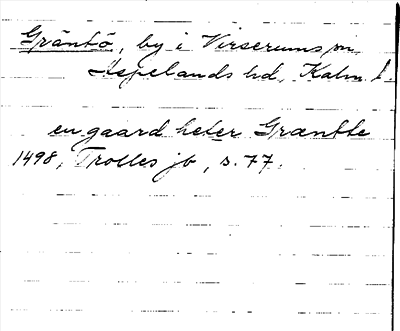 Gräntö, by i Virserums sn
Aspelands hd, Kalm. l.
en gaard heter Græntte
1498, Trolles jb, s. 77.